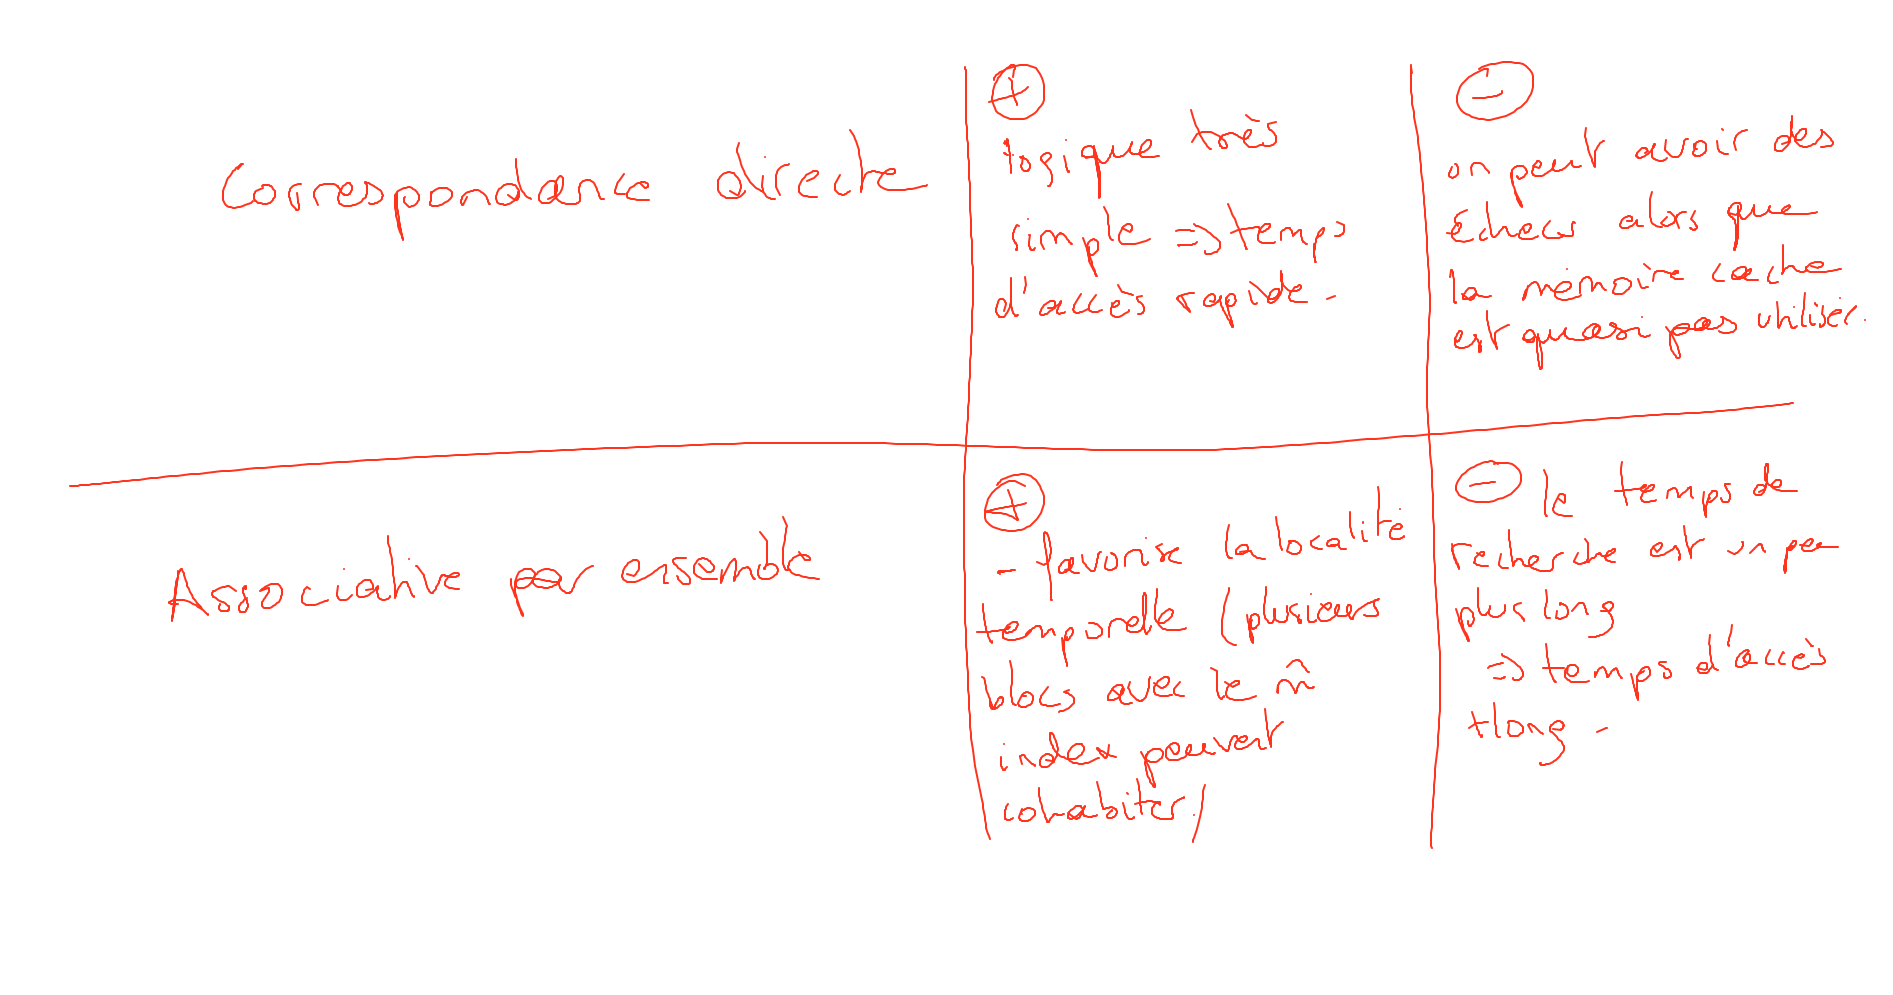 Correspondance directe
+
logique très
simple => temps
d'accès rapide.
-
on peut avoir des
échecs alors que
la mémoire cache
est quasi pas utiliser.
Associative par ensemble
+
- favorise la localité
temporelle (plusieurs
blocs avec le m̂
index peuvent
cohabiter)
- le temps de
recherche est un peu
plus long
=> temps d'accès
+long.